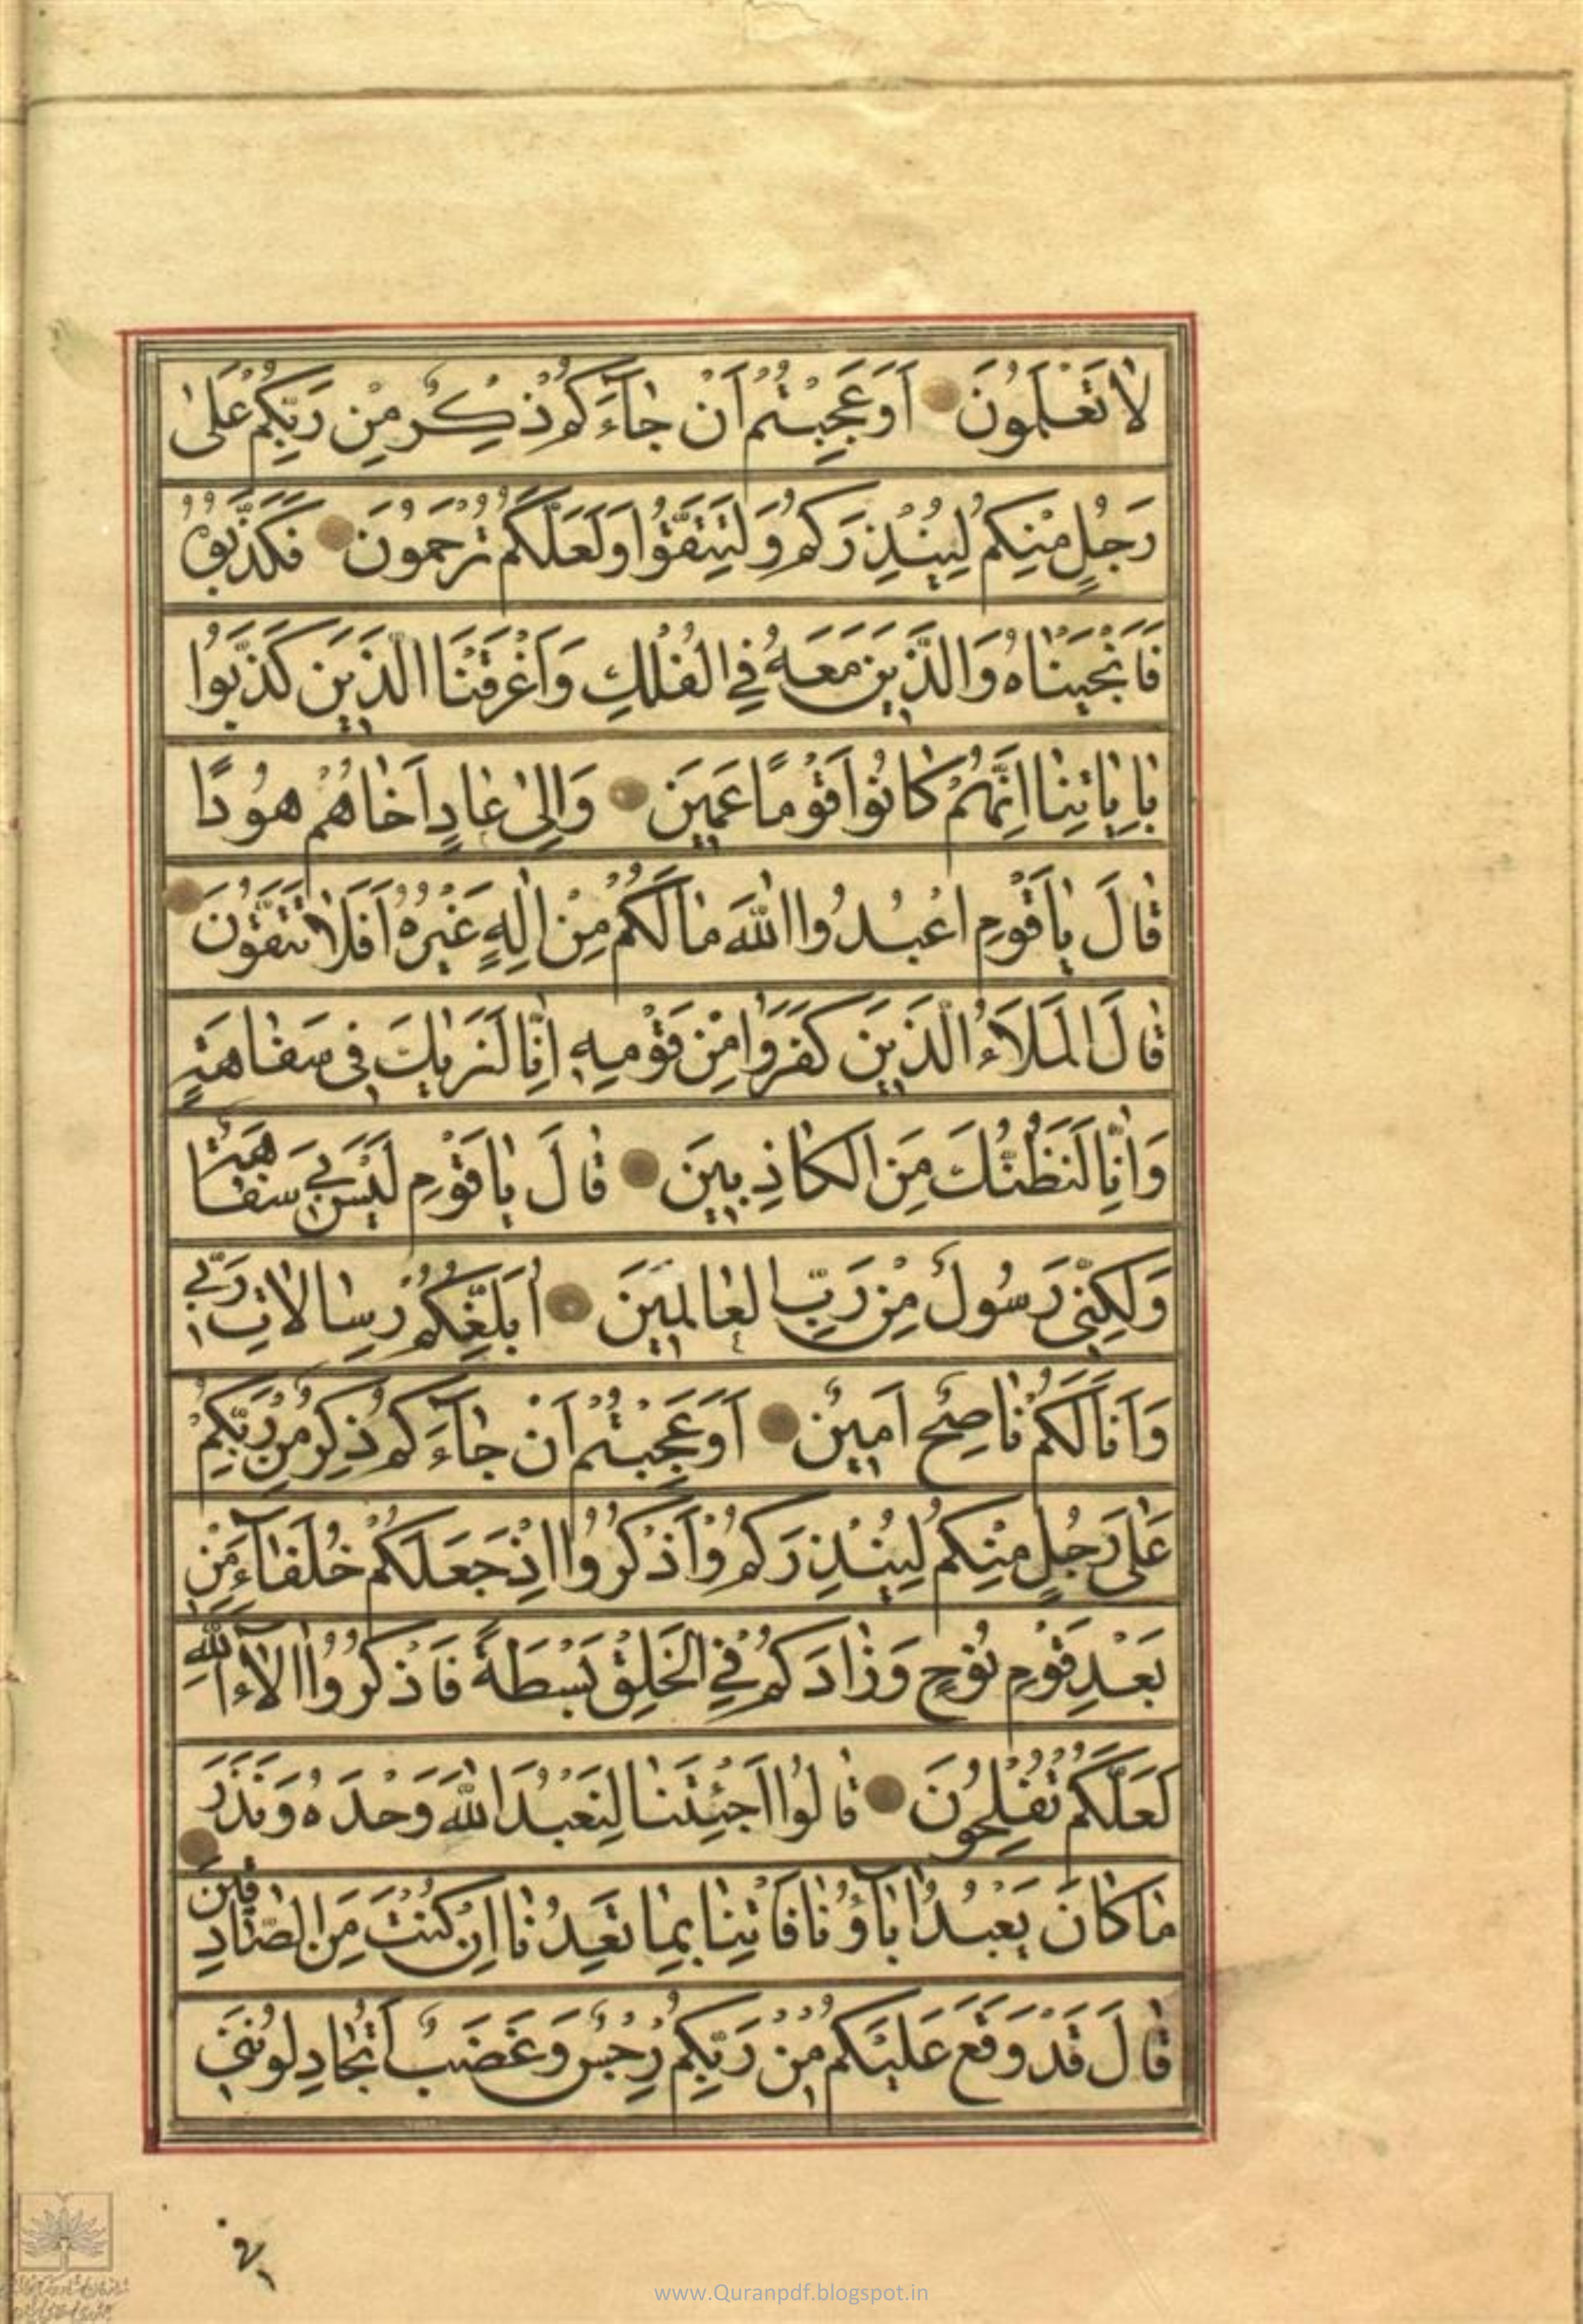 لَا تَعْلَمُونَ اَوَعَجِبْتُمْ اَنْ جَآءَكُمْ ذِكْرٌ مِنْ رَبِّكُمْ عَلٰى
رَجُلٍ مِنْكُمْ لِيُنْذِرَكُمْ وَلِتَتَّقُوا وَلَعَلَّكُمْ تُرْحَمُونَ فَكَذَّبُوهُ
فَاَنْجَيْنَاهُ وَالَّذِينَ مَعَهُ فِي الْفُلْكِ وَاَغْرَقْنَا الَّذِينَ كَذَّبُوا
بِاٰيَاتِنَا اِنَّهُمْ كَانُوا قَوْمًا عَمِينَ وَاِلٰى عَادٍ اَخَاهُمْ هُودًا
قَالَ يَاقَوْمِ اعْبُدُوا اللّٰهَ مَالَكُمْ مِنْ اِلٰهٍ غَيْرُهُ اَفَلَا تَتَّقُونَ
قَالَ الْمَلَاُ الَّذِينَ كَفَرُوا مِنْ قَوْمِهِ اِنَّا لَنَرٰيكَ فِى سَفَاهَةٍ
وَاِنَّا لَنَظُنُّكَ مِنَ الْكَاذِبِينَ قَالَ يَاقَوْمِ لَيْسَ بِي سَفَاهَةٌ
وَلٰكِنِّى رَسُولٌ مِنْ رَبِّ الْعَالَمِينَ اُبَلِّغُكُمْ رِسَالَاتِ رَبِّي
وَاَنَا لَكُمْ نَاصِحٌ اَمِينٌ اَوَعَجِبْتُمْ اَنْ جَآءَكُمْ ذِكْرٌ مِنْ رَبِّكُمْ
عَلٰى رَجُلٍ مِنْكُمْ لِيُنْذِرَكُمْ وَاذْكُرُوا اِذْ جَعَلَكُمْ خُلَفَآءَ مِنْ
بَعْدِ قَوْمِ نُوحٍ وَزَادَكُمْ فِي الْخَلْقِ بَسْطَةً فَاذْكُرُوا اٰلَآءَ اللّٰهِ
لَعَلَّكُمْ تُفْلِحُونَ قَالُوا اَجِئْتَنَا لِنَعْبُدَ اللّٰهَ وَحْدَهُ وَنَذَرَ
مَا كَانَ يَعْبُدُ اٰبَآؤُنَا فَاْتِنَا بِمَا تَعِدُنَا اِنْ كُنْتَ مِنَ الصَّادِقِينَ
قَالَ قَدْ وَقَعَ عَلَيْكُمْ مِنْ رَبِّكُمْ رِجْسٌ وَغَضَبٌ اَتُجَادِلُونَنِي
www.Quranpdf.blogspot.in